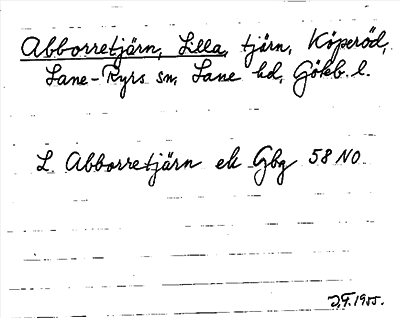 Abborretjärn, Lilla, tjärn, Köperöd,
Lane-Ryrs sn, Lane hd, Gökb. l.
L. Abborretjärn ek Gbg 58 NO.
J.F. 1955.